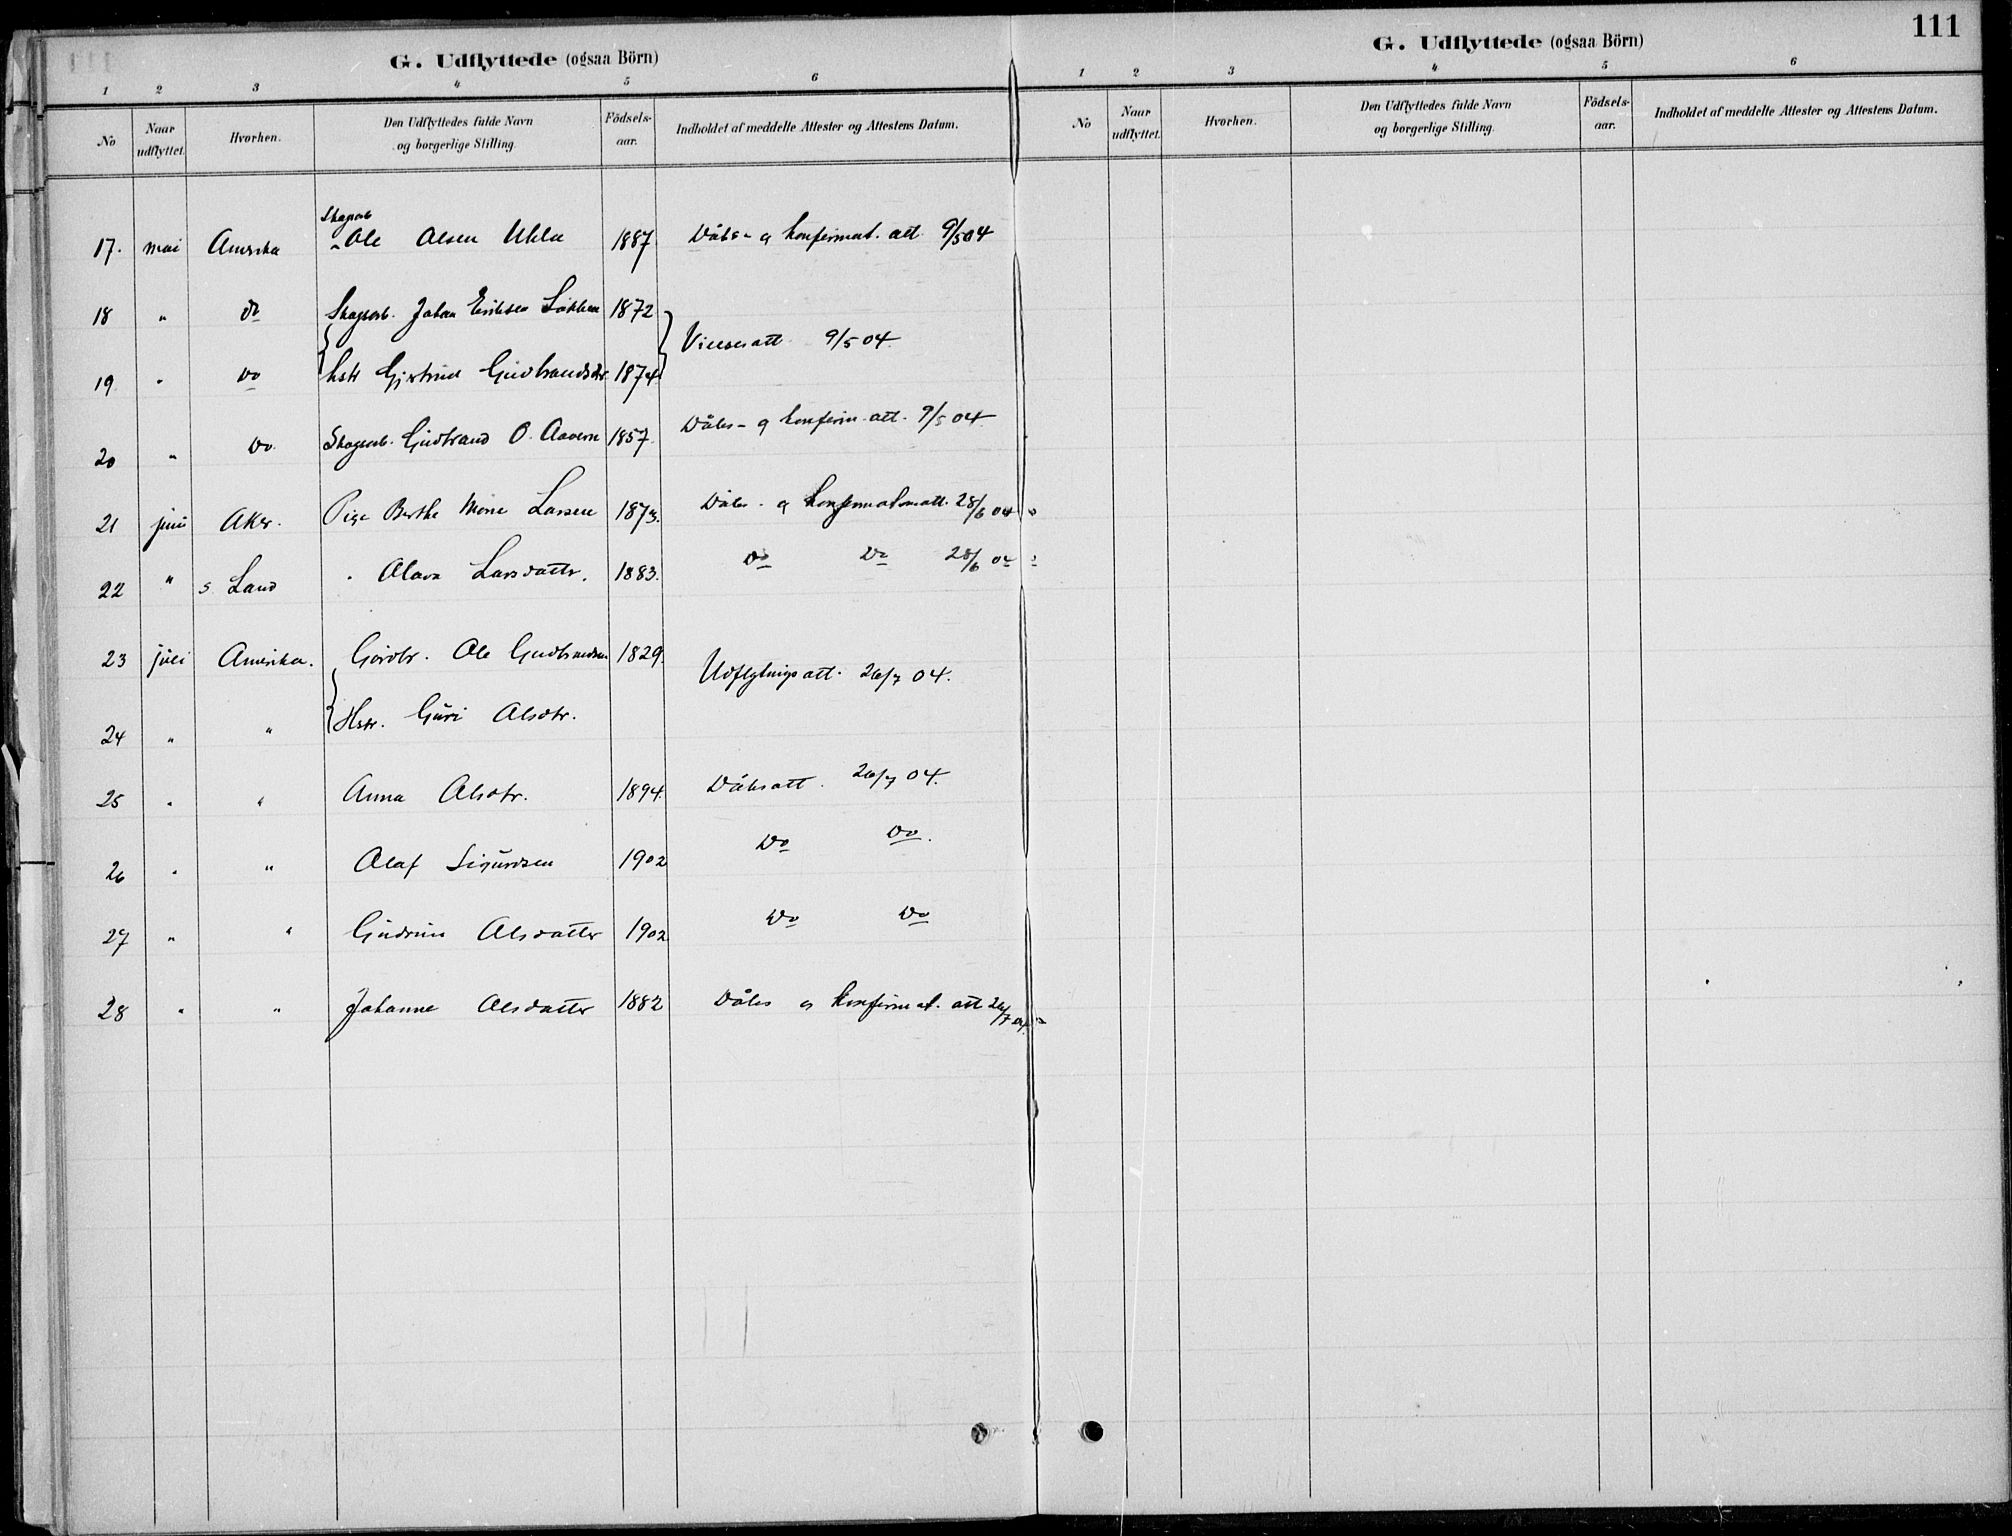 111
G. Udflyttede (ogsaa Börn)
1 2 3 4 5 6
No
Naar udflyttet.
Hvorhen.
Den Udflyttedes fulde Navn og borgerlige Stilling.
Födsels-aar.
Indholdet af meddelte Attester og Attestens Datum.
Skogarb
17. mai Amerika Ole Olsen 1887 Dåbs- og konfirmat. att. 9/5 04
18 " do Skogarb. Johan Eriksen 1872
Vielsesatt. 9/5 04.
19 " do Hstr Gjertrud Gudbrandsdtr 1874
20 " do. Skogarb. Gudbrand O. 1857. Dåbs- og konfirm. att. 9/5 04
21 juni Aker. Pige Berthe Larsen 1873. Dåbs- og konfirmationsatt. 28/6 04
22 " s. Land " Olava Larsdatter. 1883. do do 28/6 04
23 juli Amerika. Gårdbr. Ole Gudbrandsen 1829.
Udflytningsatt. 26/7 04.
24 " " Hstr. Guri Olsdtr.
25 " " Anna Olsdtr. 1894. Dåbsatt. 26/7 04.
26 " " Olaf Sigurdsen 1902 do do.
27 " " Gudrun Olsdatter 1902 do do
28 " " Johanne Olsdatter 1882 Dåbs og konfirmat. att 26/7 04.
G. Udflyttede (ogsaa Börn)
1 2 3 4 5 6
No
Naar udflyttet.
Hvorhen.
Den Udflyttedes fulde Navn og borgerlige Stilling.
Födsels-aar.
Indholdet af meddelte Attester og Attestens Datum.